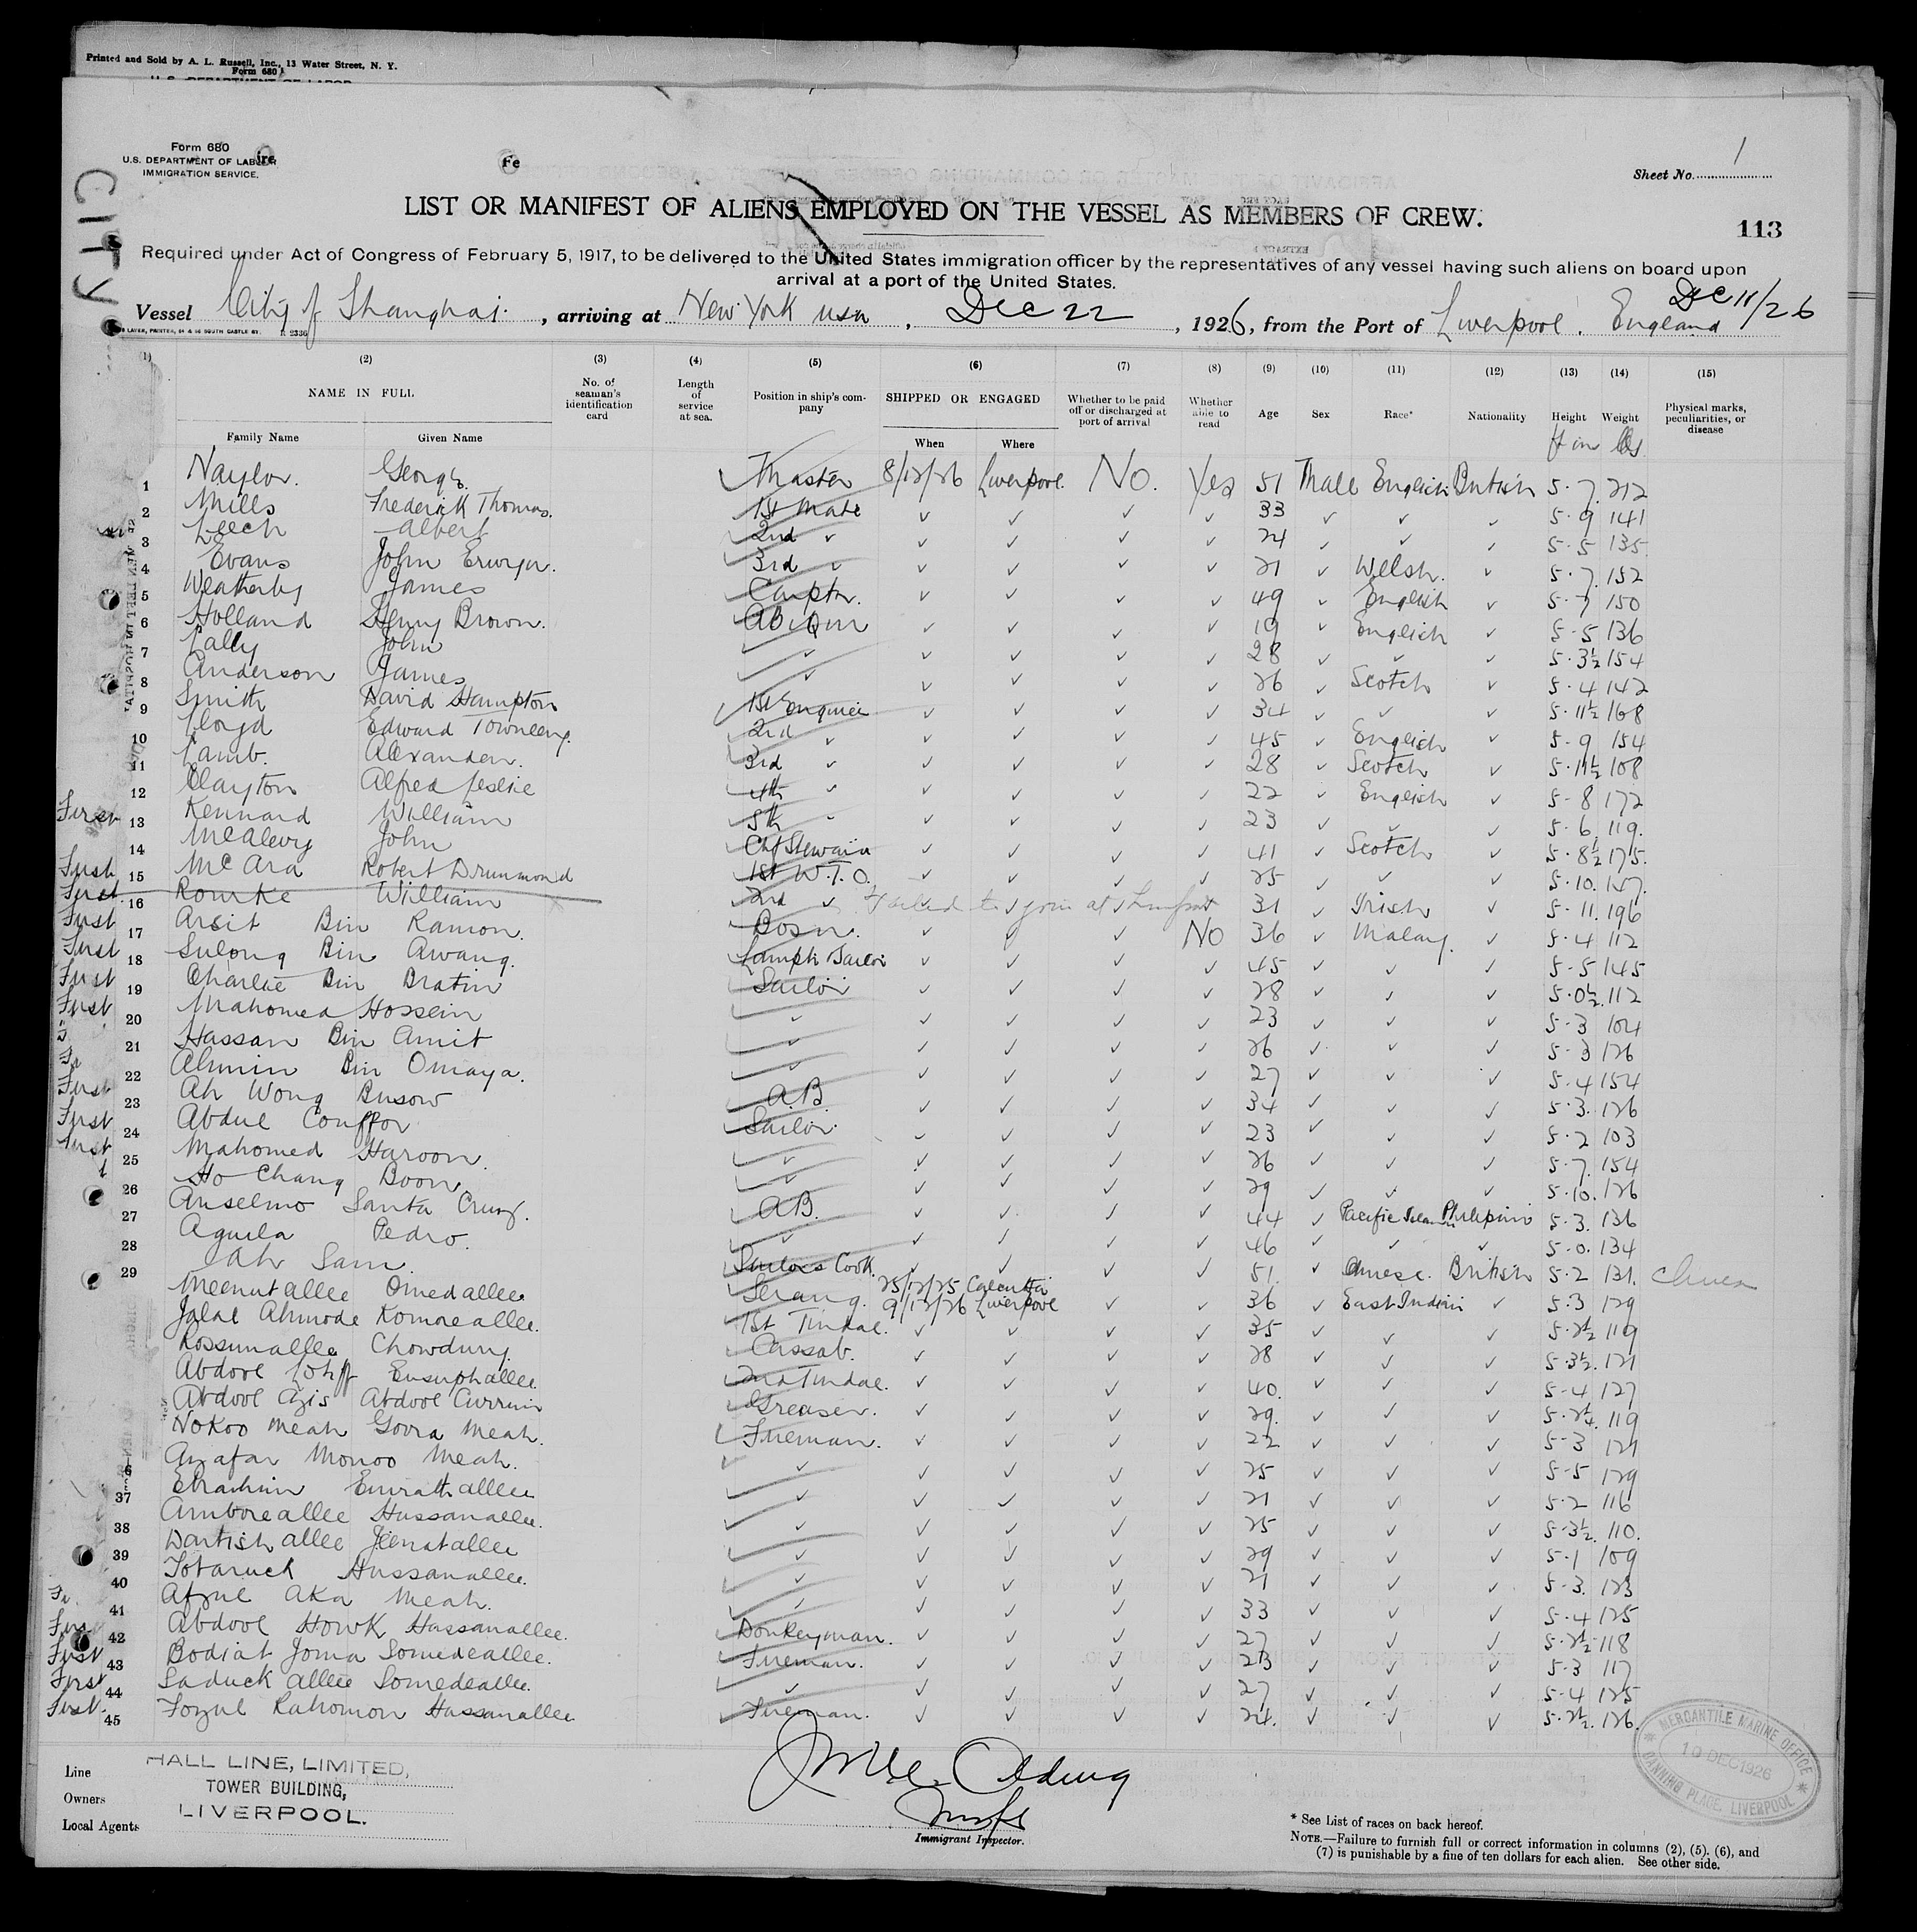 Printed and Sold by A. L. Russell, Inc., 13 Water Street, N. Y.
Form 680
U. S. DEPARTMENT OF LABOR
Form 680
U.S. DEPARTMENT OF LABOR
IMMIGRATION SERVICE.
Fe
Sheet No. 1
CITY
LIST OR MANIFEST OF ALIENS EMPLOYED ON THE VESSEL AS MEMBERS OF CREW.
113
Required under Act of Congress of February 5, 1917, to be delivered to the United States immigration officer by the representatives of any vessel having such aliens on board upon
arrival at a port of the United States.
Dec 11/26
Vessel City of Shanghai, arriving at New York USA, Dec 22, 1926, from the Port of Liverpool. England
(1) (2) (3) (4) (5) (6) (7) (8) (9) (10) (11) (12) (13) (14) (15)
NAME IN FULL No. of seaman's identification card Length of service at sea. Position in ship's company SHIPPED OR ENGAGED Whether to be paid off or discharged at port of arrival Whether able to read Age Sex Race* Nationality Height Weight Physical marks, peculiarities, or disease
Family Name Given Name When Where ft in lbs
1 Naylor. George. ✓ Master 8/12/26 Liverpool. No. Yes 51 Male English British 5.7. 212
2 Mills Frederick Thomas. 1st Mate ✓ ✓ ✓ ✓ 33 ✓ ✓ ✓ 5.9 141
3 Leech Albert 2nd ✓ ✓ ✓ ✓ ✓ 24 ✓ ✓ ✓ 5.5 135
4 Evans John Erwyn. 3rd ✓ ✓ ✓ ✓ ✓ 21 ✓ Welsh. ✓ 5.7. 152
5 Weatherby James Carptr. ✓ ✓ ✓ ✓ 49 ✓ English ✓ 5.7 150
6 Holland Henry Brown. ✓ ✓ ✓ ✓ 19 ✓ English ✓ 5.5 136
7 Lally John ✓ ✓ ✓ ✓ ✓ 28 ✓ ✓ ✓ 5.3½ 154
8 Anderson James ✓ ✓ ✓ ✓ ✓ 26 ✓ Scotch ✓ 5.4 142
9 Smith David Hampton 1st Engineer ✓ ✓ ✓ ✓ 34 ✓ ✓ ✓ 5.11½ 168
10 Lloyd Edward Towneley. 2nd ✓ ✓ ✓ ✓ ✓ 45 ✓ English ✓ 5.9 154
11 Lamb. Alexander. 3rd ✓ ✓ ✓ ✓ ✓ 28 ✓ Scotch ✓ 5.11½ 108
12 Clayton Alfred Leslie 4th ✓ ✓ ✓ ✓ ✓ 22 ✓ English ✓ 5-8 172
First 13 Kennard William 5th ✓ ✓ ✓ ✓ ✓ 23 ✓ ✓ ✓ 5.6. 119.
14 McAlevy John Chf Steward ✓ ✓ ✓ ✓ 41 ✓ Scotch ✓ 5.8½ 175.
First 15 McAra Robert Drummond 1st W.T.O. ✓ ✓ ✓ ✓ 25 ✓ ✓ ✓ 5.10. 147.
First 16 Rourke William 2nd ✓ Failed to join at ✓ 31 ✓ Irish ✓ 5.11. 196
First 17 Arsit Bin Ramon. Bosn. ✓ ✓ ✓ No 36 ✓ Malay. ✓ 5.4 112
First 18 Sulong Bin Awang. Lamps Sailor ✓ ✓ ✓ ✓ 45 ✓ ✓ ✓ 5-5 145
First 19 Charlie Bin Bratin Sailor ✓ ✓ ✓ ✓ 28 ✓ ✓ ✓ 5.0½. 112
First 20 Mahomed Hossein ✓ ✓ ✓ ✓ ✓ 23 ✓ ✓ ✓ 5.3 104
21 Hassan Bin Amit ✓ ✓ ✓ ✓ ✓ 26 ✓ ✓ ✓ 5.3 126
22 Ahmin Bin Omaya. ✓ ✓ ✓ ✓ ✓ 27 ✓ ✓ ✓ 5.4 154
First 23 Ah Wong Busow A.B. ✓ ✓ ✓ ✓ 34 ✓ ✓ ✓ 5.3. 126
First 24 Abdul Sailor ✓ ✓ ✓ ✓ 23 ✓ ✓ ✓ 5.2 103
First 25 Mahomed Haroon. ✓ ✓ ✓ ✓ ✓ 26 ✓ ✓ ✓ 5.7. 154
26 Ho Chang Boon. ✓ ✓ ✓ ✓ ✓ 29 ✓ ✓ ✓ 5.10. 126
27 Anselmo Santa Cruz. A.B. ✓ ✓ ✓ ✓ 44 ✓ Pacific Philipini 5.3. 136
28 Aguila Pedro. ✓ ✓ ✓ ✓ ✓ 46 ✓ ✓ ✓ 5.0. 134
29 Ah Sam. Sailors Cook. ✓ ✓ ✓ ✓ 51. ✓ Chinese. British 5.2 131.
Meenutallee Omedallee Serang. 25/12/25 Calcutta 9/12/26 Liverpool ✓ ✓ 36 ✓ East Indian ✓ 5.3 129
Jalal Ahmode Komoreallee. 1st Tindal. ✓ ✓ ✓ ✓ 35 ✓ ✓ ✓ 5.2½ 119
Rossunallee Chowdury. Cassab. ✓ ✓ ✓ ✓ 28 ✓ ✓ ✓ 5.3½. 121
Abdool Eusuphallee. 2nd Tindal. ✓ ✓ ✓ ✓ 40. ✓ ✓ ✓ 5-4 127
Abdool Azis Abdool Currim Greaser. ✓ ✓ ✓ ✓ 29. ✓ ✓ ✓ 119
Nokoo Meah Goura Meah. Fireman. ✓ ✓ ✓ ✓ 22 ✓ ✓ ✓ 5-3 121
6 Azafar Monoo Meah. ✓ ✓ ✓ ✓ ✓ 25 ✓ ✓ ✓ 5-5 129
37 Ebrahim Emratallee ✓ ✓ ✓ ✓ ✓ 21 ✓ ✓ ✓ 5.2 116
38 Amboreallee Hussanallee. ✓ ✓ ✓ ✓ ✓ 25 ✓ ✓ ✓ 5.3½. 110.
39 Dartish allee Jeenatallee ✓ ✓ ✓ ✓ ✓ 29 ✓ ✓ ✓ 5.1 109
40 Totaruck Hussanallee. ✓ ✓ ✓ ✓ ✓ 21 ✓ ✓ ✓ 5-3. 123
41 Afzul Aka Meah. ✓ ✓ ✓ ✓ ✓ 33 ✓ ✓ ✓ 5.4 125
First 42 Abdool Howk Hassanallee. Donkeyman. ✓ ✓ ✓ ✓ 27 ✓ ✓ ✓ 5.2½ 118
First 43 Bodiat Joma Somedeallee. Fireman. ✓ ✓ ✓ ✓ 23 ✓ ✓ ✓ 5.3 117
First 44 Saduck Allee Somedeallee. ✓ ✓ ✓ ✓ ✓ 27 ✓ ✓ ✓ 5-4 125
First. 45 Fozul Rahomon Hassanallee Fireman. ✓ ✓ ✓ ✓ 24. ✓ ✓ ✓ 5.2½. 126.
Line HALL LINE, LIMITED,
Owners TOWER BUILDING,
Local Agents LIVERPOOL.
Immigrant Inspector.
MERCANTILE MARINE OFFICE
10 DEC 1926
CANNING PLACE. LIVERPOOL
* See List of races on back hereof.
NOTE.—Failure to furnish full or correct information in columns (2), (5), (6), and
(7) is punishable by a fine of ten dollars for each alien. See other side.